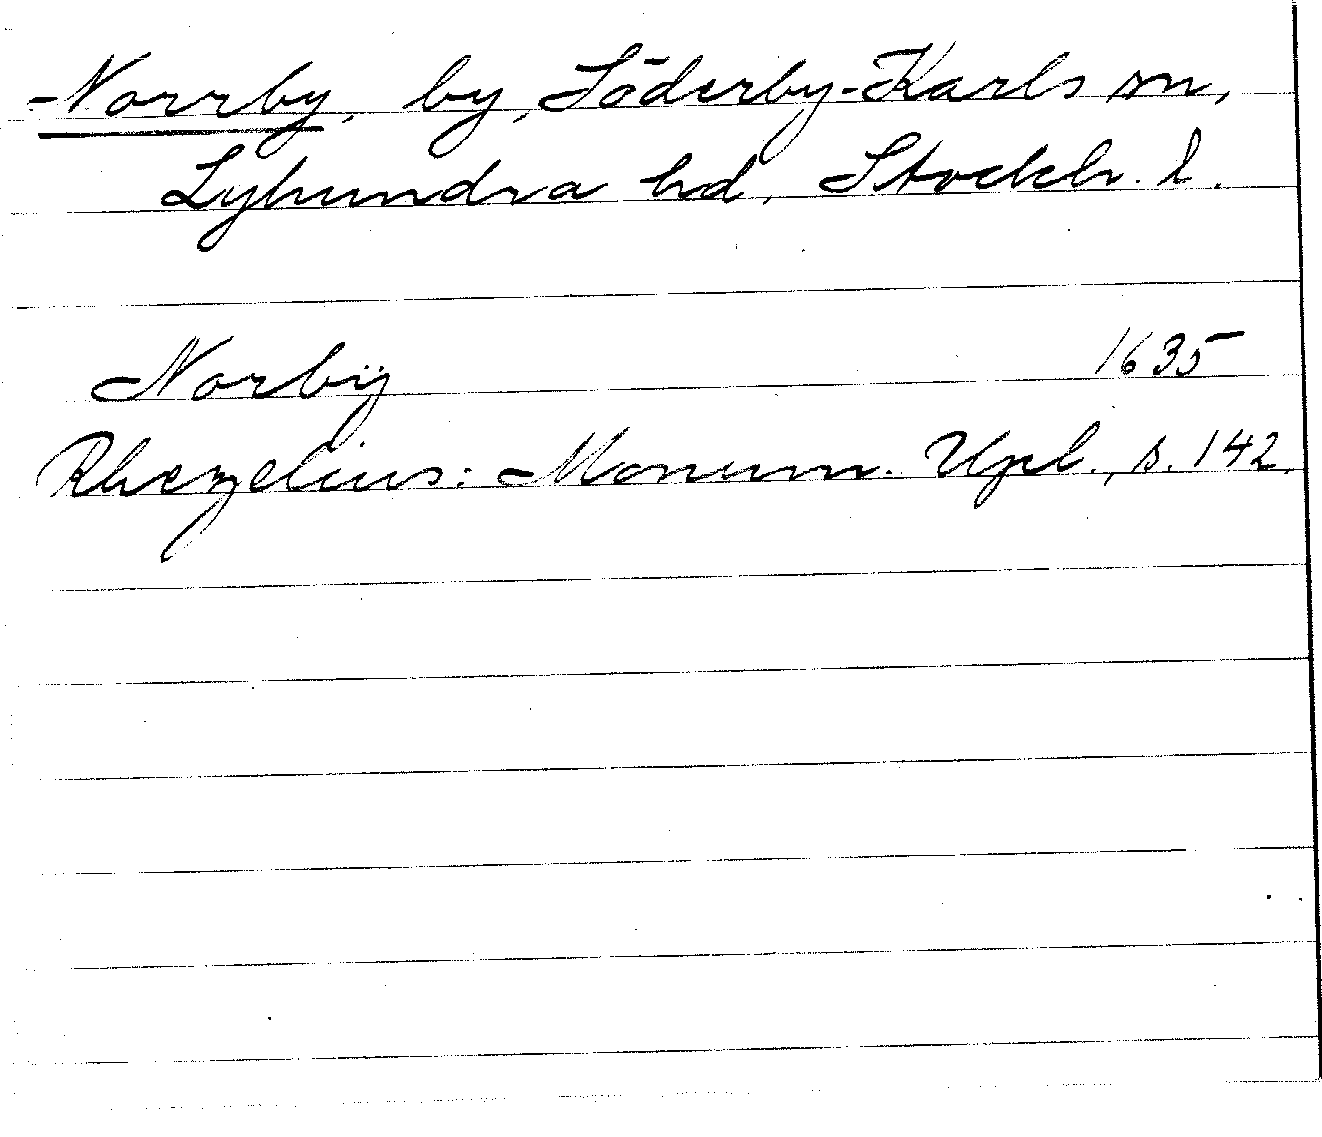 Norrby, by, Söderby-Karls sn,
Lyhundra hd, Stockh. l.
Norbÿ 1635
Rhezelius: Monum. Upl., s. 142.